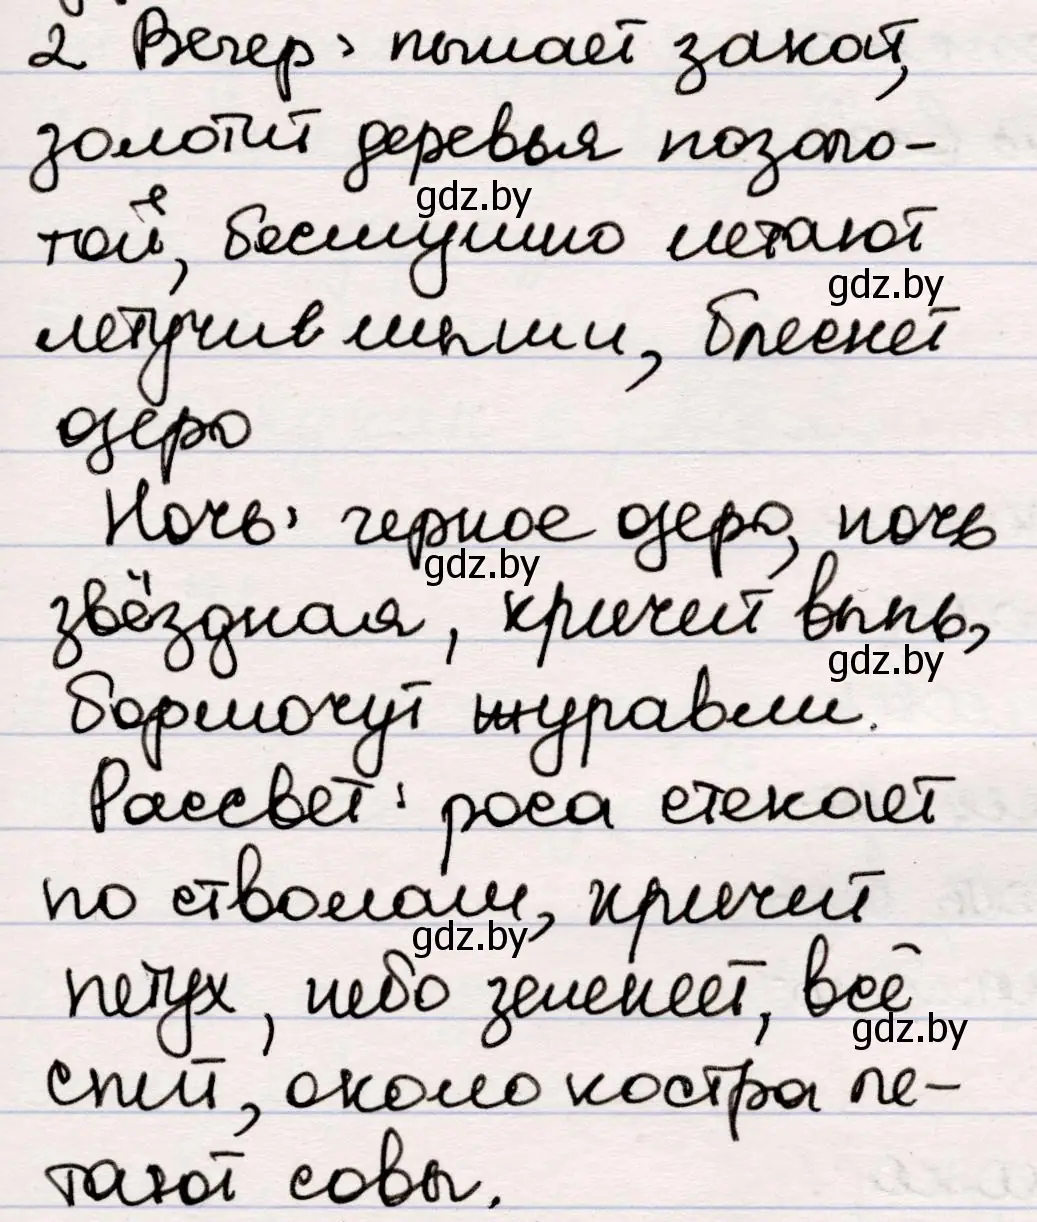 2 Вечер: пылает закат,
золотит деревья позоло-
gdz.by
той, бесшумно летают
gdz.by
летучие мыши, блеснет
озеро
Ночь: черное озеро, ночь
gdz.by
звёздная, кричит выпь,
gdz.by
бормочут журавли.
Рассвет: роса стекает
по стволам, кричит
gdz.by
петух, небо зеленеет, всё
gdz.by
спит, около костра ле-
тают совы.